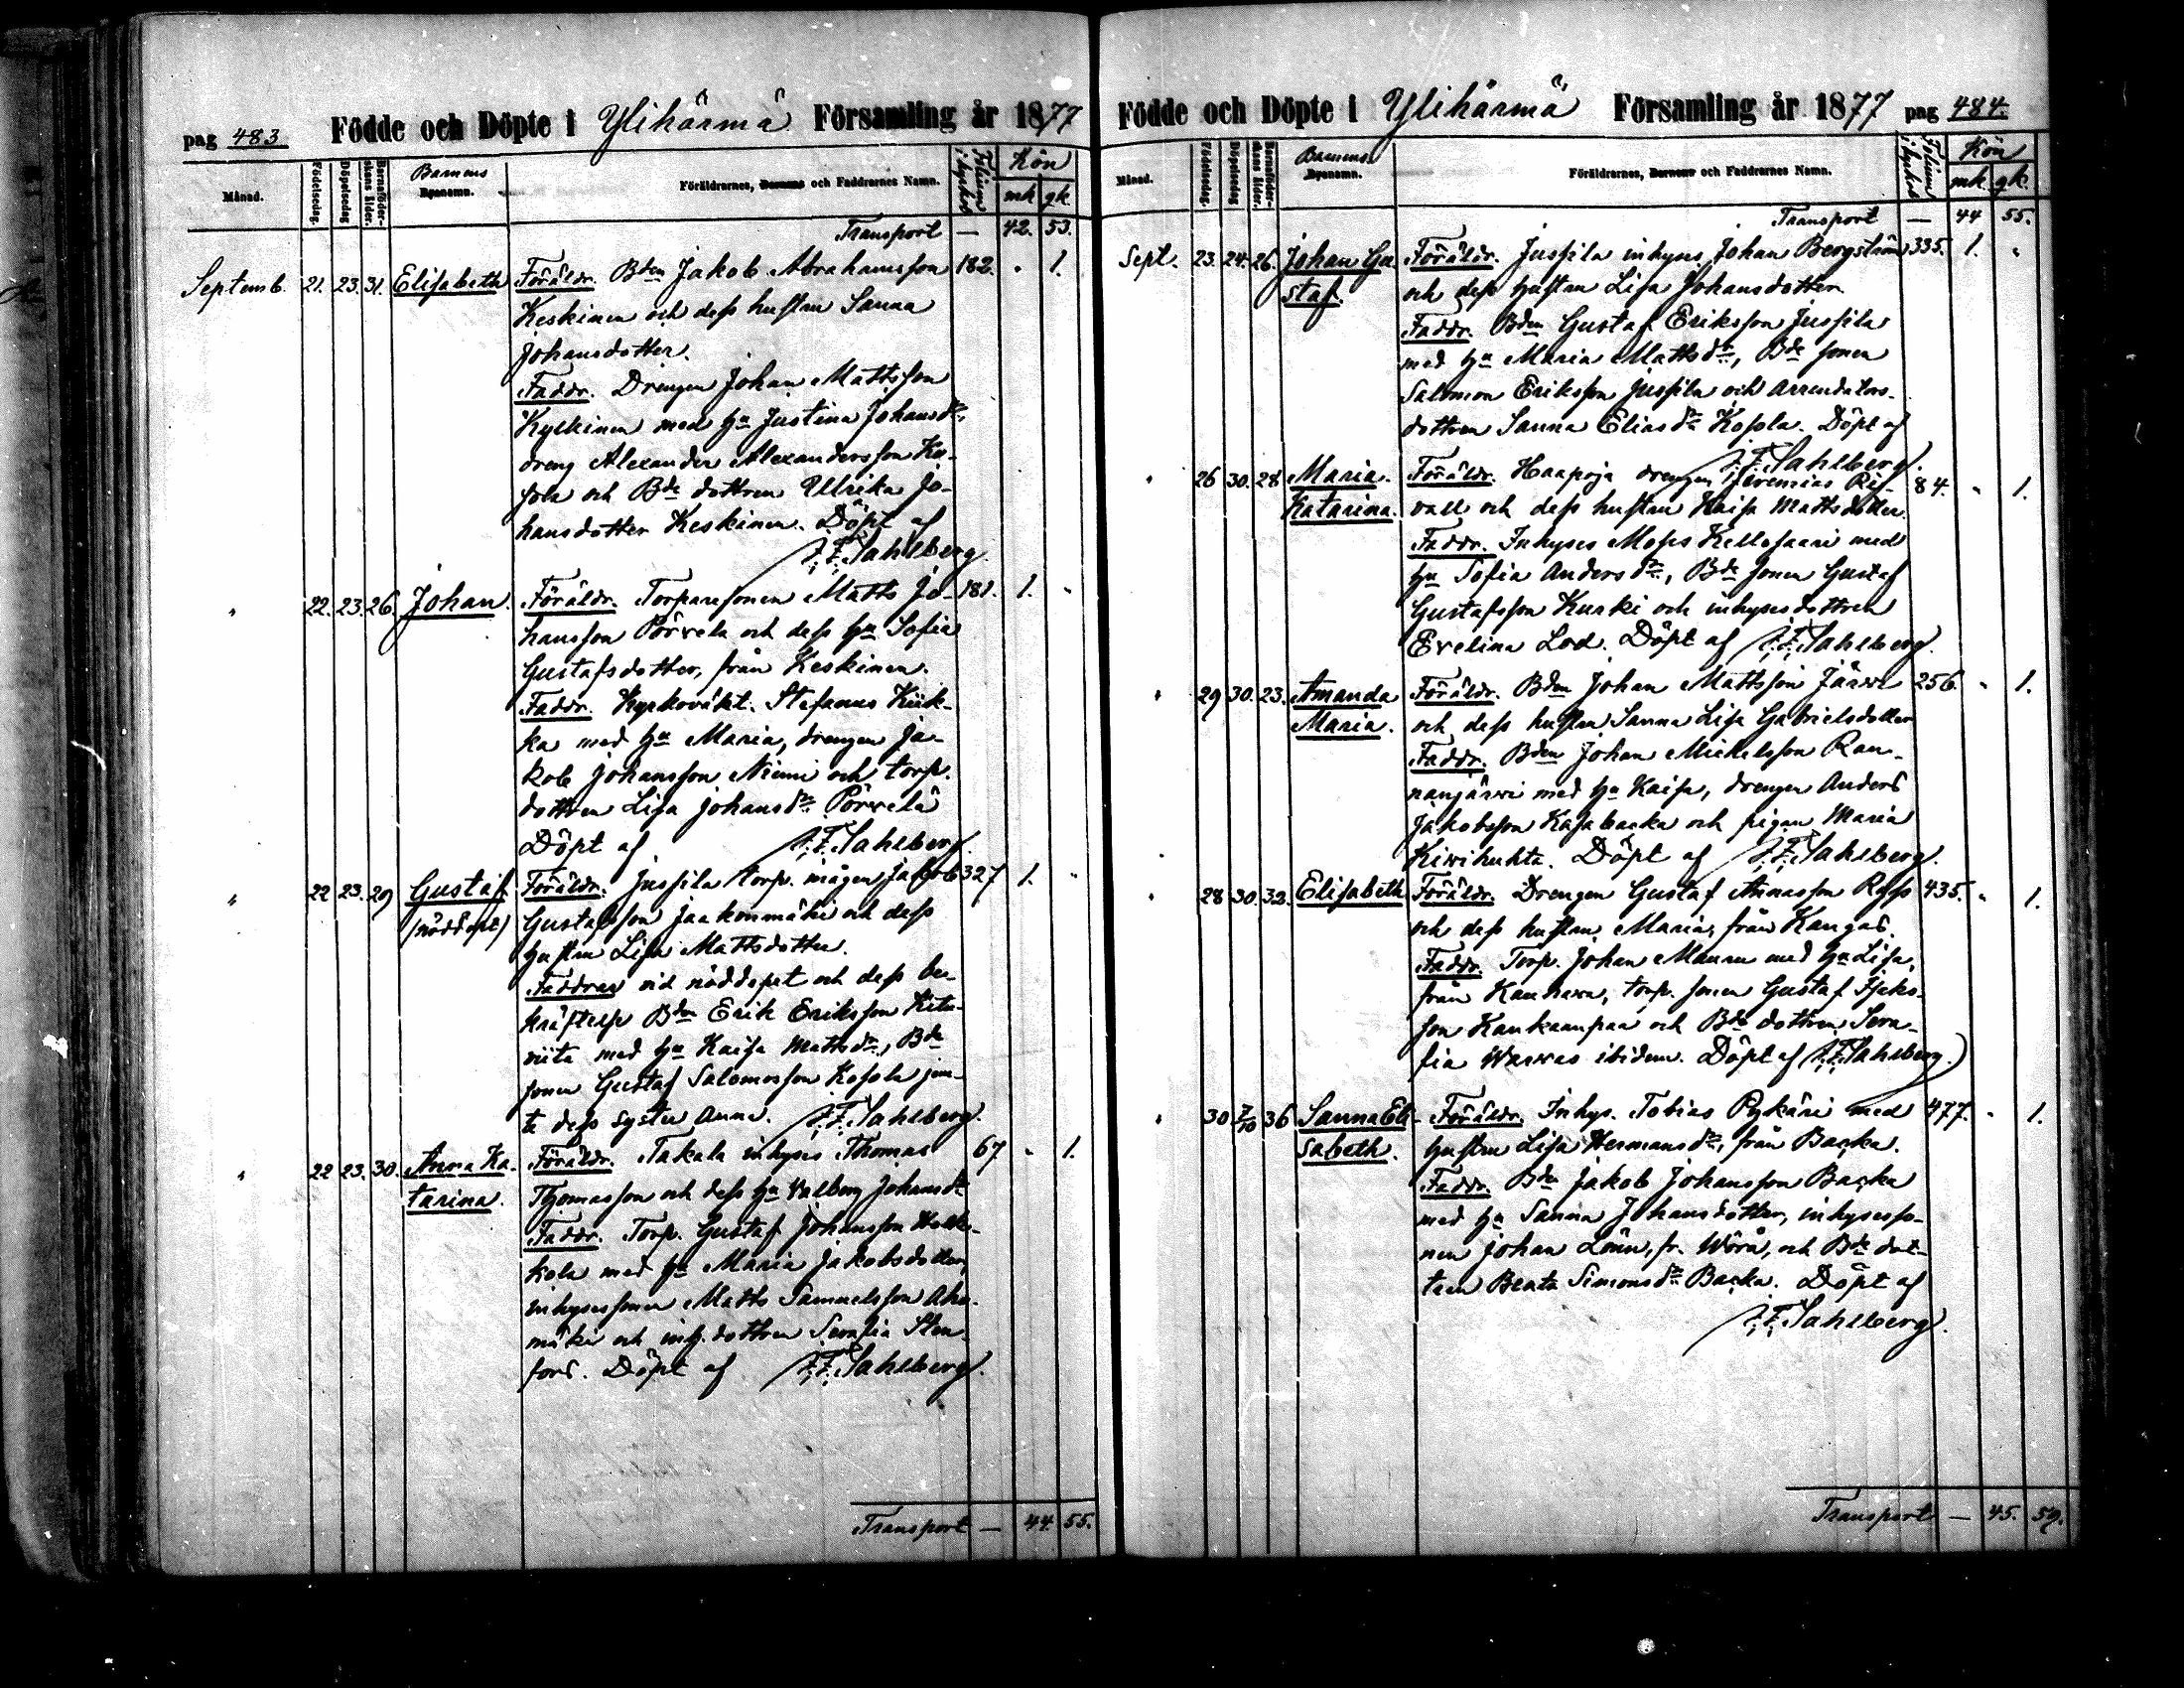 pag 483 Födde och Döpte i Ylihärmä Församling år 1877
Månad. Födelsedag. Döpelsedag Barnaföderskans ålder. Barnens Byenamn. Föräldrarnes, Barnens och Faddrarnes Namn. Kön
mk gk
Transport — 42. 53.
Septemb. 21. 23. 31. Elisabeth Föräldr. Bden Jakob Abrahamsson 182. " 1.
Keskinen och dess hustru Sanna
Johansdotter.
Faddr. Drengen Johan Mattsson
Kylkinen med hu Justina Johansdr,
dreng Alexander Alexandersson Ko-
sola och Bde dottren Ulrika Jo-
hansdotter Keskinen. Döpt af
J.F. Sahlberg
" 22. 23. 26. Johan. Föräldr. Torparesonen Matts Jo- 181. 1. "
hansson Pörrelä och dess hu Sofia
Gustafsdotter, från Keskinen.
Faddr. Kyrkoväkt. Stefanus Kiik-
ka med hu Maria, drengen Ja-
kob Johansson Niemi och torp.
dottren Lisa Johansdr Pörrelä
Döpt af J.F. Sahlberg
" 22 23. 29 Gustaf Föräldr. Jussila torp. mågen Jakob 327 1. "
(nöddöpt) Gustafsson Jaakonmäki och dess
hustru Lisa Mattsdotter.
Faddrar vid nöddopet och dess be-
kräftelse Bden Erik Eriksson
med hu Kaisa Mattsdr, Bde
sonen Gustaf Salomosson Kosola jem-
te dess syster Anna. J.F. Sahlberg.
" 22 23. 30. Anna Ka- Föräldr. Takala inhyses Thomas 67 " 1.
tarina. Thomasson och dess hu Valborg Johansdr
Faddr. Torp. Gustaf Johansson
kola med hu Maria Jakobsdotter,
inhysessonen Matts Samuelsson Aho-
mäki och inh. dottren Serafia Sten-
fors. Döpt af J.F. Sahlberg.
Transport — 44. 55.
Födde och Döpte i Ylihärmä Församling år 1877 pag 484.
Månad. Födelsedag. Döpelsedag Barnaföderskans ålder. Barnens Byenamn. Föräldrarnes, Barnens och Faddrarnes Namn. Kön
mk. gk.
Transport — 44 55.
Sept. 23. 24. 26. Johan Gu- Föräldr. Jussila inhyses Johan Bergström 335. 1. "
staf. och dess hustru Lisa Johansdotter.
Faddr. Bden Gustaf Eriksson Jussila
med hu Maria Mattsdr, Bde sonen
Salomon Eriksson Jussila och arrendators-
dottren Sanna Eliasdr Kosola. Döpt af
J.F. Sahlberg.
" 26 30. 28. Maria Föräldr. Haapoja drengen Jeremias Ri- 84. " 1.
Katarina. vall och dess hustru Kaisa Mattsdotter.
Faddr. Inhyses Moses Kellosaari med
hu Sofia Andersdr, Bde sonen Gustaf
Gustafsson Kurki och inhysesdottren
Evelina Lod. Döpt af J.F. Sahlberg.
" 29 30. 23. Amanda Föräldr. Bden Johan Mattsson Järwi 256. " 1.
Maria. och dess hustru Sanna Lisa Gabrielsdotter
Faddr. Bden Johan Michelsson Ran-
nanjärwi med hu Kaisa, drengen Anders
Jakobsson Kasabacka och pigan Maria
Kiwihuhta. Döpt af J.F. Sahlberg.
" 28 30. 32. Elisabeth Föräldr. Drengen Gustaf 435. " 1.
och dess hustru Maria, från Kangas.
Faddr. Torp. Johan Mauru med hu Lisa,
från Kauhawa, torp. sonen Gustaf Isaks-
son Kankaanpää och Bde dottren Sera-
fia Warwas ibidem. Döpt af J.F. Sahlberg.
" 30 7/10 36 Sanna Eli- Föräldr. Inhys. Tobias Pykäri med 477. " 1.
sabeth. hustru Lisa Hermansdr, från Backa.
Faddr. Bde Jakob Johansson Backa
med hu Sanna Johansdotter, inhysesso-
nen Johan Lönn, fr. Wörå, och Bde dot-
tren Beata Simonsdr Backa. Döpt af
J.F. Sahlberg.
Transport — 45. 59.